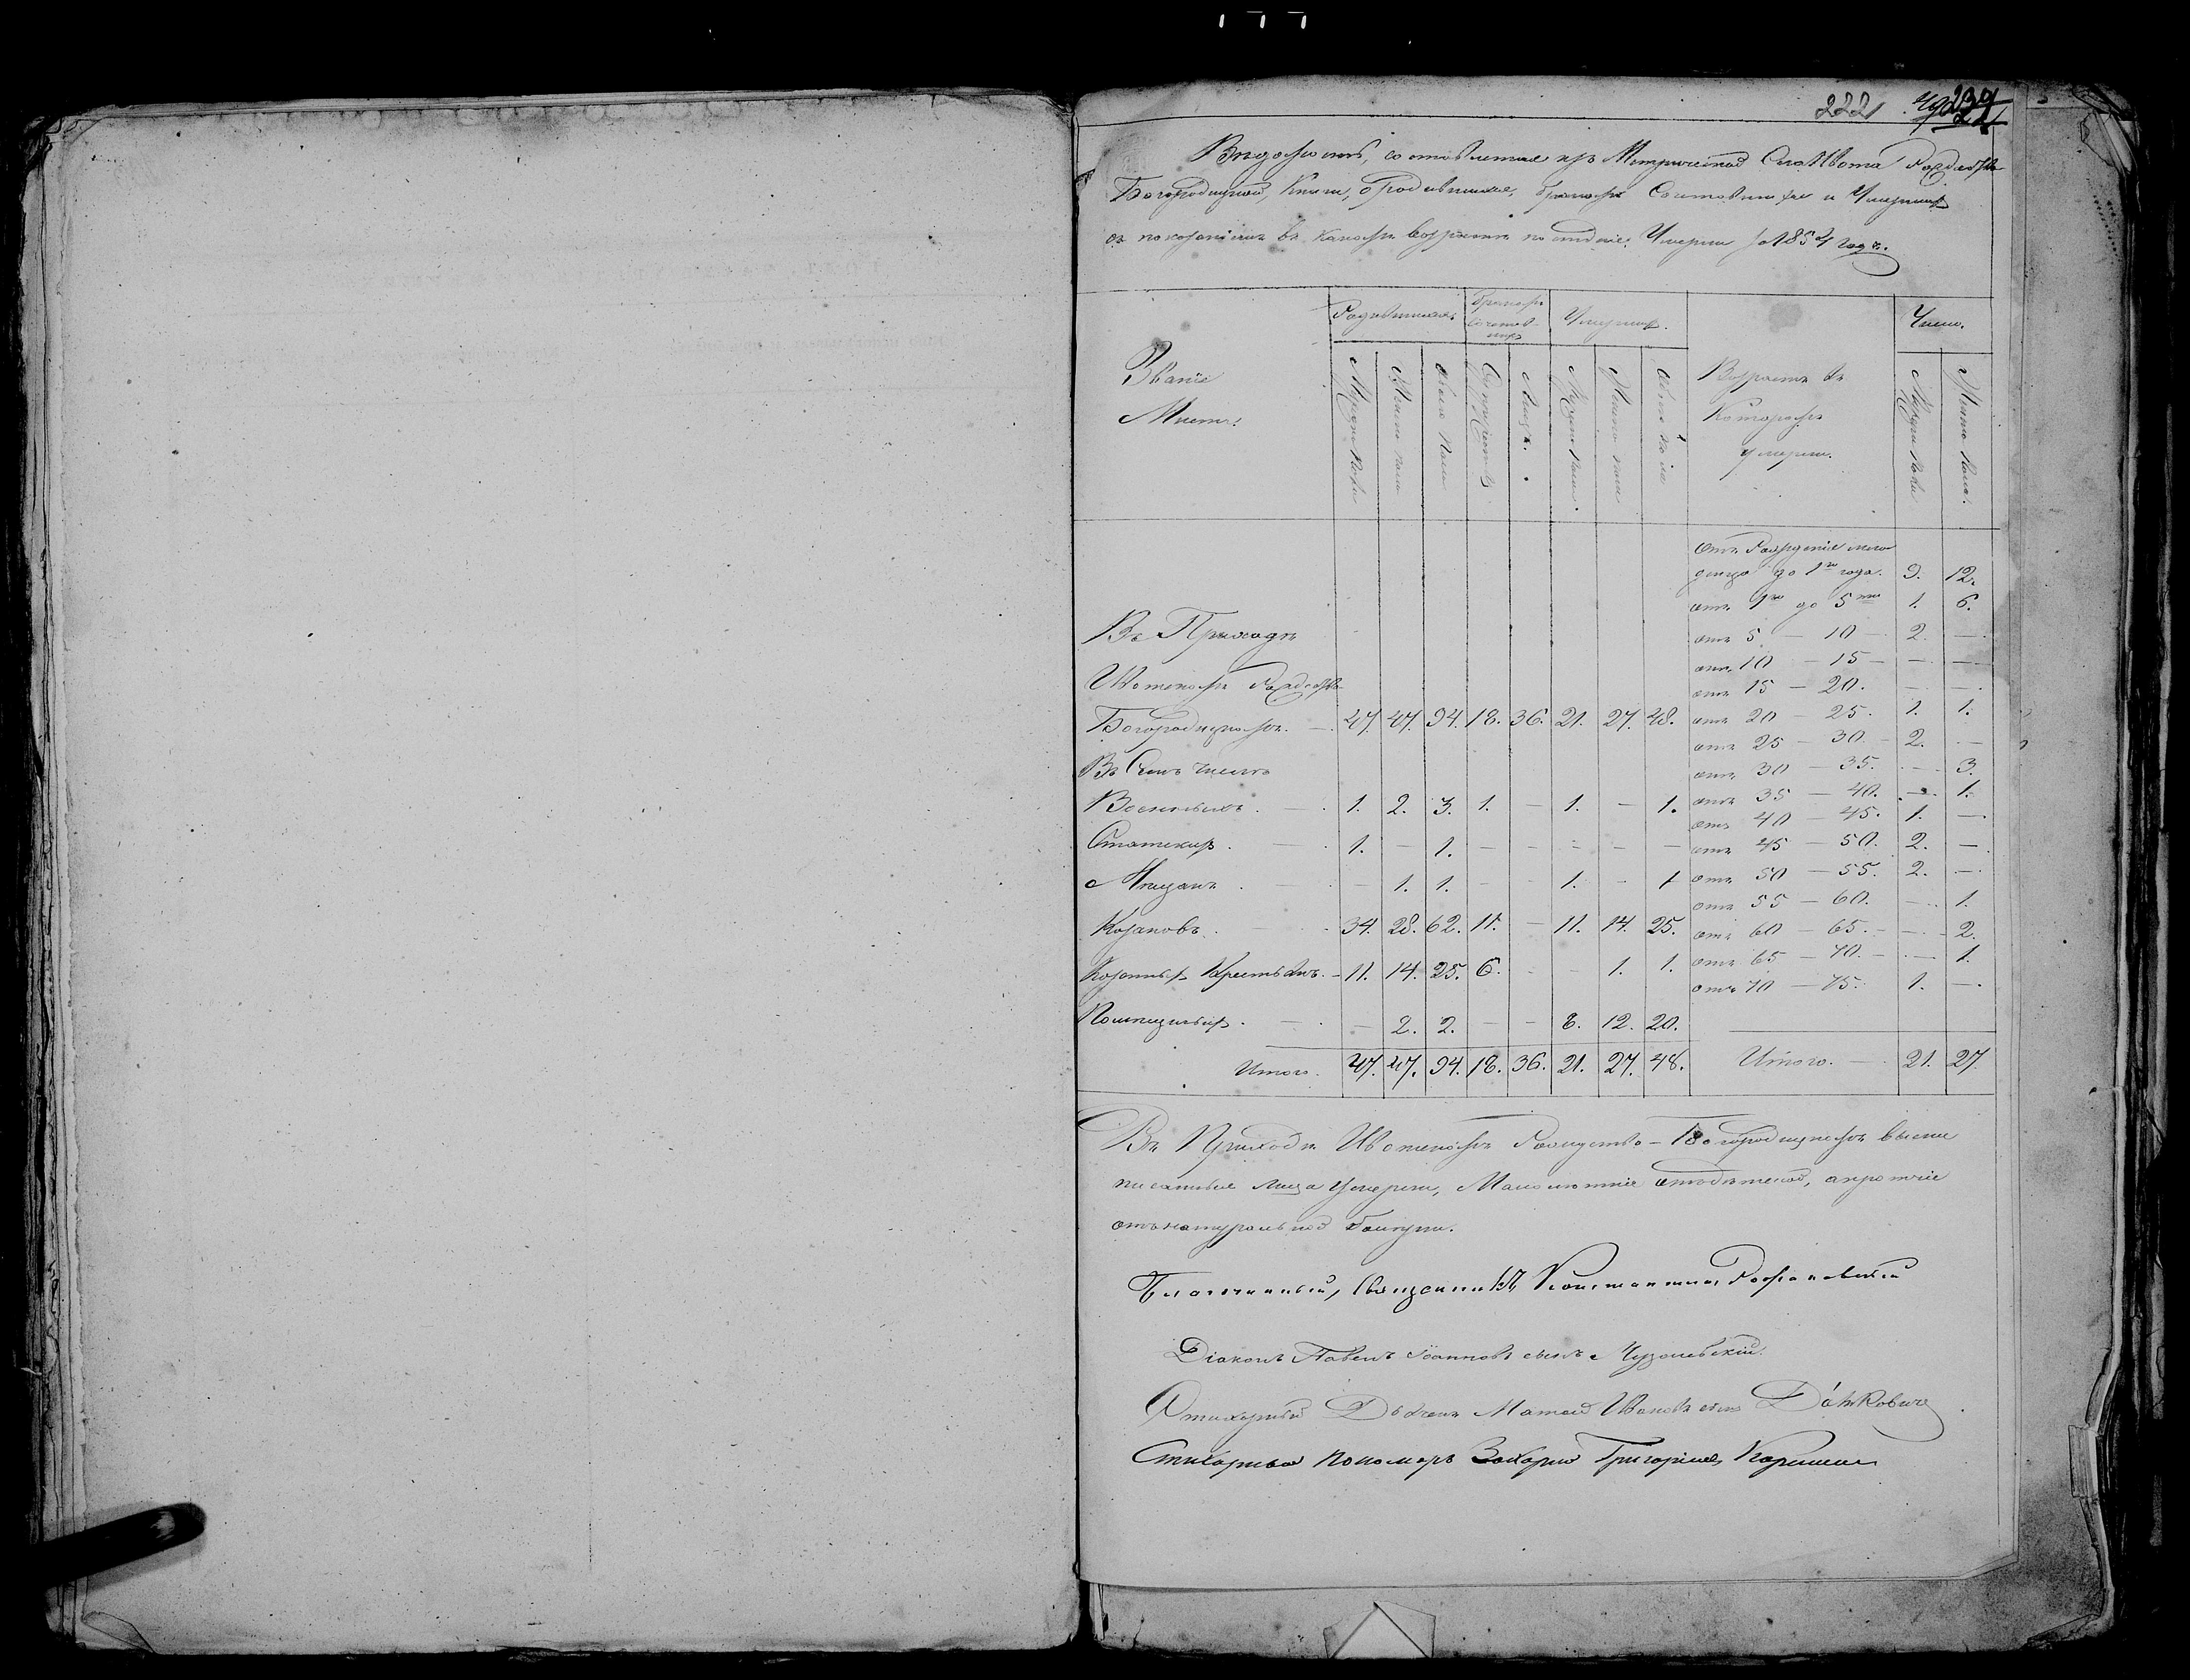 222
Ведомость, составленная изъ Метрической Села Ивота Рождество-
Богородицкой, Книги, о родившихся, бракомъ Сочетавшихся и Умершихъ
съ показаніемъ въ какомъ возрасте последніе Умерли за 1854 годъ.
Званіе Местъ. Родившихся Бракомъ сочетавшихся Умершихъ. Возрастъ въ Которомъ умерли. Число.
Мужеска пола Женска пола Обоего пола Супружествъ Лицъ. Мужеска пола. Женска пола Обоего пола Мужеска пола Женска пола.
Отъ Рожденія мла-
денца до 1го года. 9. 12.
отъ 1го до 5ти 1. 6.
Въ Приходе
отъ 5 — 10 — 2. —.
отъ 10 — 15 — — —
Ивотскомъ Рождество-
отъ 15 — 20. — —.
Богородицкомъ. — 47. 47. 94. 18. 36. 21. 27. 48. отъ 20 — 25. 1. 1.
отъ 25 — 30 — 2. —
Въ Семъ числе
отъ 30 — 35. — 3.
Военныхъ. — 1. 2. 3. 1. — 1. — 1. отъ 35 — 40. — 1.
отъ 40 — 45. 1. —.
Статскихъ. — 1. — 1. — — — — — отъ 45 — 50. 2. —.
Мещанъ. — — 1. 1. — — 1. — 1 отъ 50 — 55. 2. —.
отъ 55 — 60. — 1.
Козаковъ. — 34. 28. 62. 11. — 11. 14. 25. отъ 60 — 65. — — 2.
Казенныхъ Крестьянъ. — 11. 14. 25. 6. — — 1. 1. отъ 65 — 70. — — 1.
отъ 70 — 75. 1. —.
Помещичьихъ. — — 2. 2. — — 8. 12. 20.
Итого. 47. 47. 94. 18. 36. 21. 27. 48. Итого. — 21. 27.
Въ Приходе Ивотскомъ Рождество-Богородицкомъ выше
писанные лица Умерли, Малолетніе отъ детской, а прочіе
отъ натуральной болезни.
Благочинный, Священникъ Константинъ
Діаконъ Павелъ Іоанновъ сынъ
Стихарный Дьячекъ Матвей Ивановъ сынъ Данковичъ
Стихарный Пономарь Захарій Григоріевъ